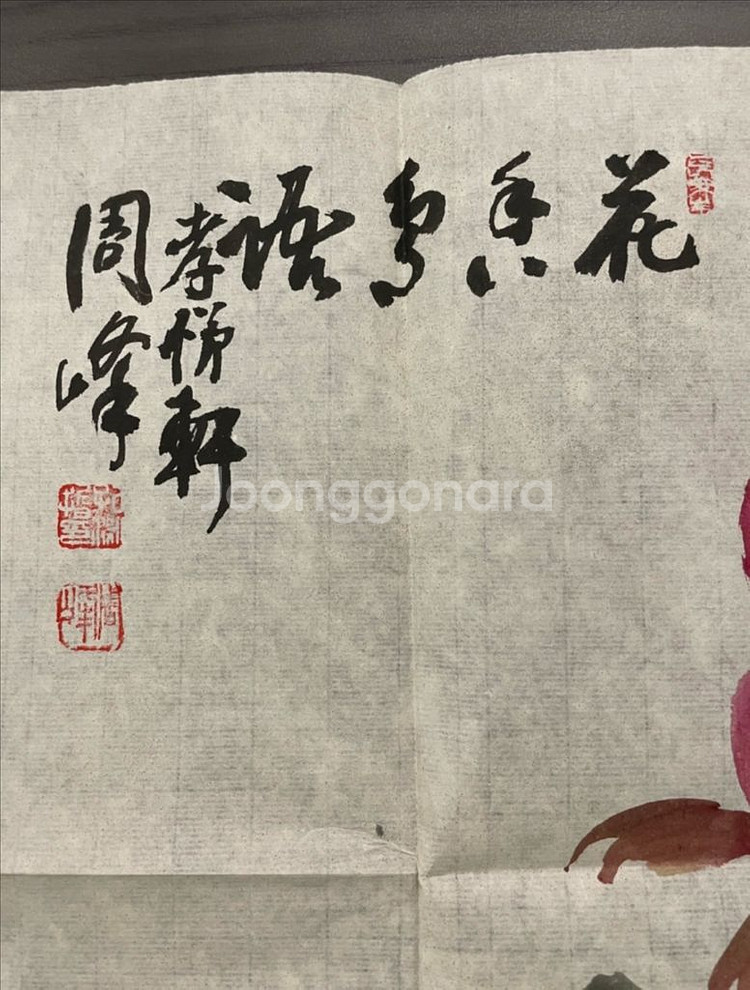 花香鳥語
孝悌軒
周峰
周峰
Joonggonara